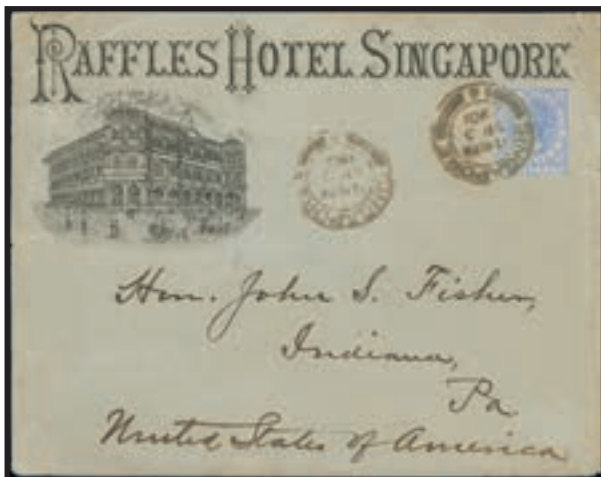 RAFFLES HOTEL SINGAPORE
Hon. John S. Fisher,
Indiana,
Pa.
United States of America